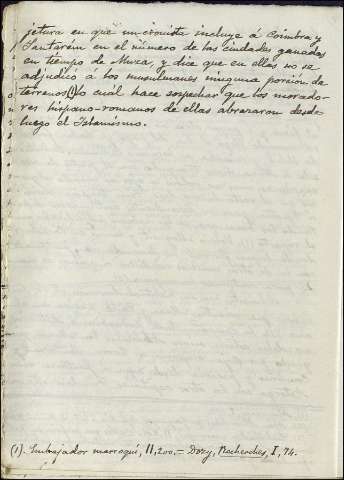 jetura en que un cronista incluye á Coimbra y
Santarém en el número de las ciudades ganadas
en tiempo de Muza, y dice que en ellas no se
adjudicó a los musulmanes ninguna porción de
terrenos(1) lo cuál hace sospechar que los morado-
res hispano-romanos de ellas abrazaron desde
luego el Islamismo.
(1). Embajador marroquí, II, 200. = Dozy, Recherches, I, 74.